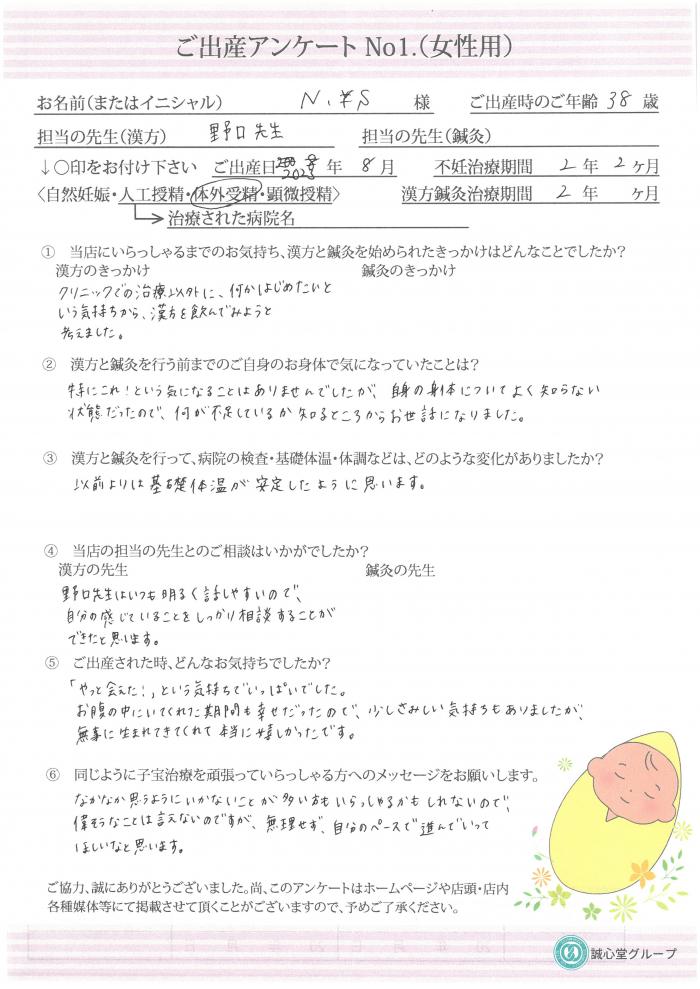 ご出産アンケート No1.(女性用)
お名前(またはイニシャル) N.Y.S 様 ご出産時のご年齢 38 歳
担当の先生(漢方) 野口先生 担当の先生(鍼灸)
↓〇印をお付け下さい ご出産日 2023 年 8 月 不妊治療期間 2 年 2 ヶ月
〈自然妊娠・人工授精・体外受精・顕微授精〉 漢方鍼灸治療期間 2 年 ヶ月
治療された病院名
① 当店にいらっしゃるまでのお気持ち、漢方と鍼灸を始められたきっかけはどんなことでしたか?
漢方のきっかけ 鍼灸のきっかけ
クリニックでの治療以外に、何かはじめたいと
いう気持ちから、漢方を飲んでみようと
考えました。
② 漢方と鍼灸を行う前までのご自身のお身体で気になっていたことは?
特にこれ!という気になることはありませんでしたが、自身の身体についてよく知らない
状態だったので、何が不足しているか知るところからお世話になりました。
③ 漢方と鍼灸を行って、病院の検査・基礎体温・体調などは、どのような変化がありましたか?
以前よりは基礎体温が安定したように思います。
④ 当店の担当の先生とのご相談はいかがでしたか?
漢方の先生 鍼灸の先生
野口先生はいつも明るく話しやすいので、
自分の感じていることをしっかり相談することが
できたと思います。
⑤ ご出産された時、どんなお気持ちでしたか?
「やっと会えた!」という気持ちでいっぱいでした。
お腹の中にいてくれた期間も幸せだったので、少しさみしい気持ちもありましたが、
無事に生まれてきてくれて本当に嬉しかったです。
⑥ 同じように子宝治療を頑張っていらっしゃる方へのメッセージをお願いします。
なかなか思うようにいかないことが多い方もいらっしゃるかもしれないので、
偉そうなことは言えないのですが、無理せず、自分のペースで進んでいって
ほしいなと思います。
ご協力、誠にありがとうございました。尚、このアンケートはホームページや店頭・店内
各種媒体等にて掲載させて頂くことがございますので、予めご了承ください。
誠心堂グループ